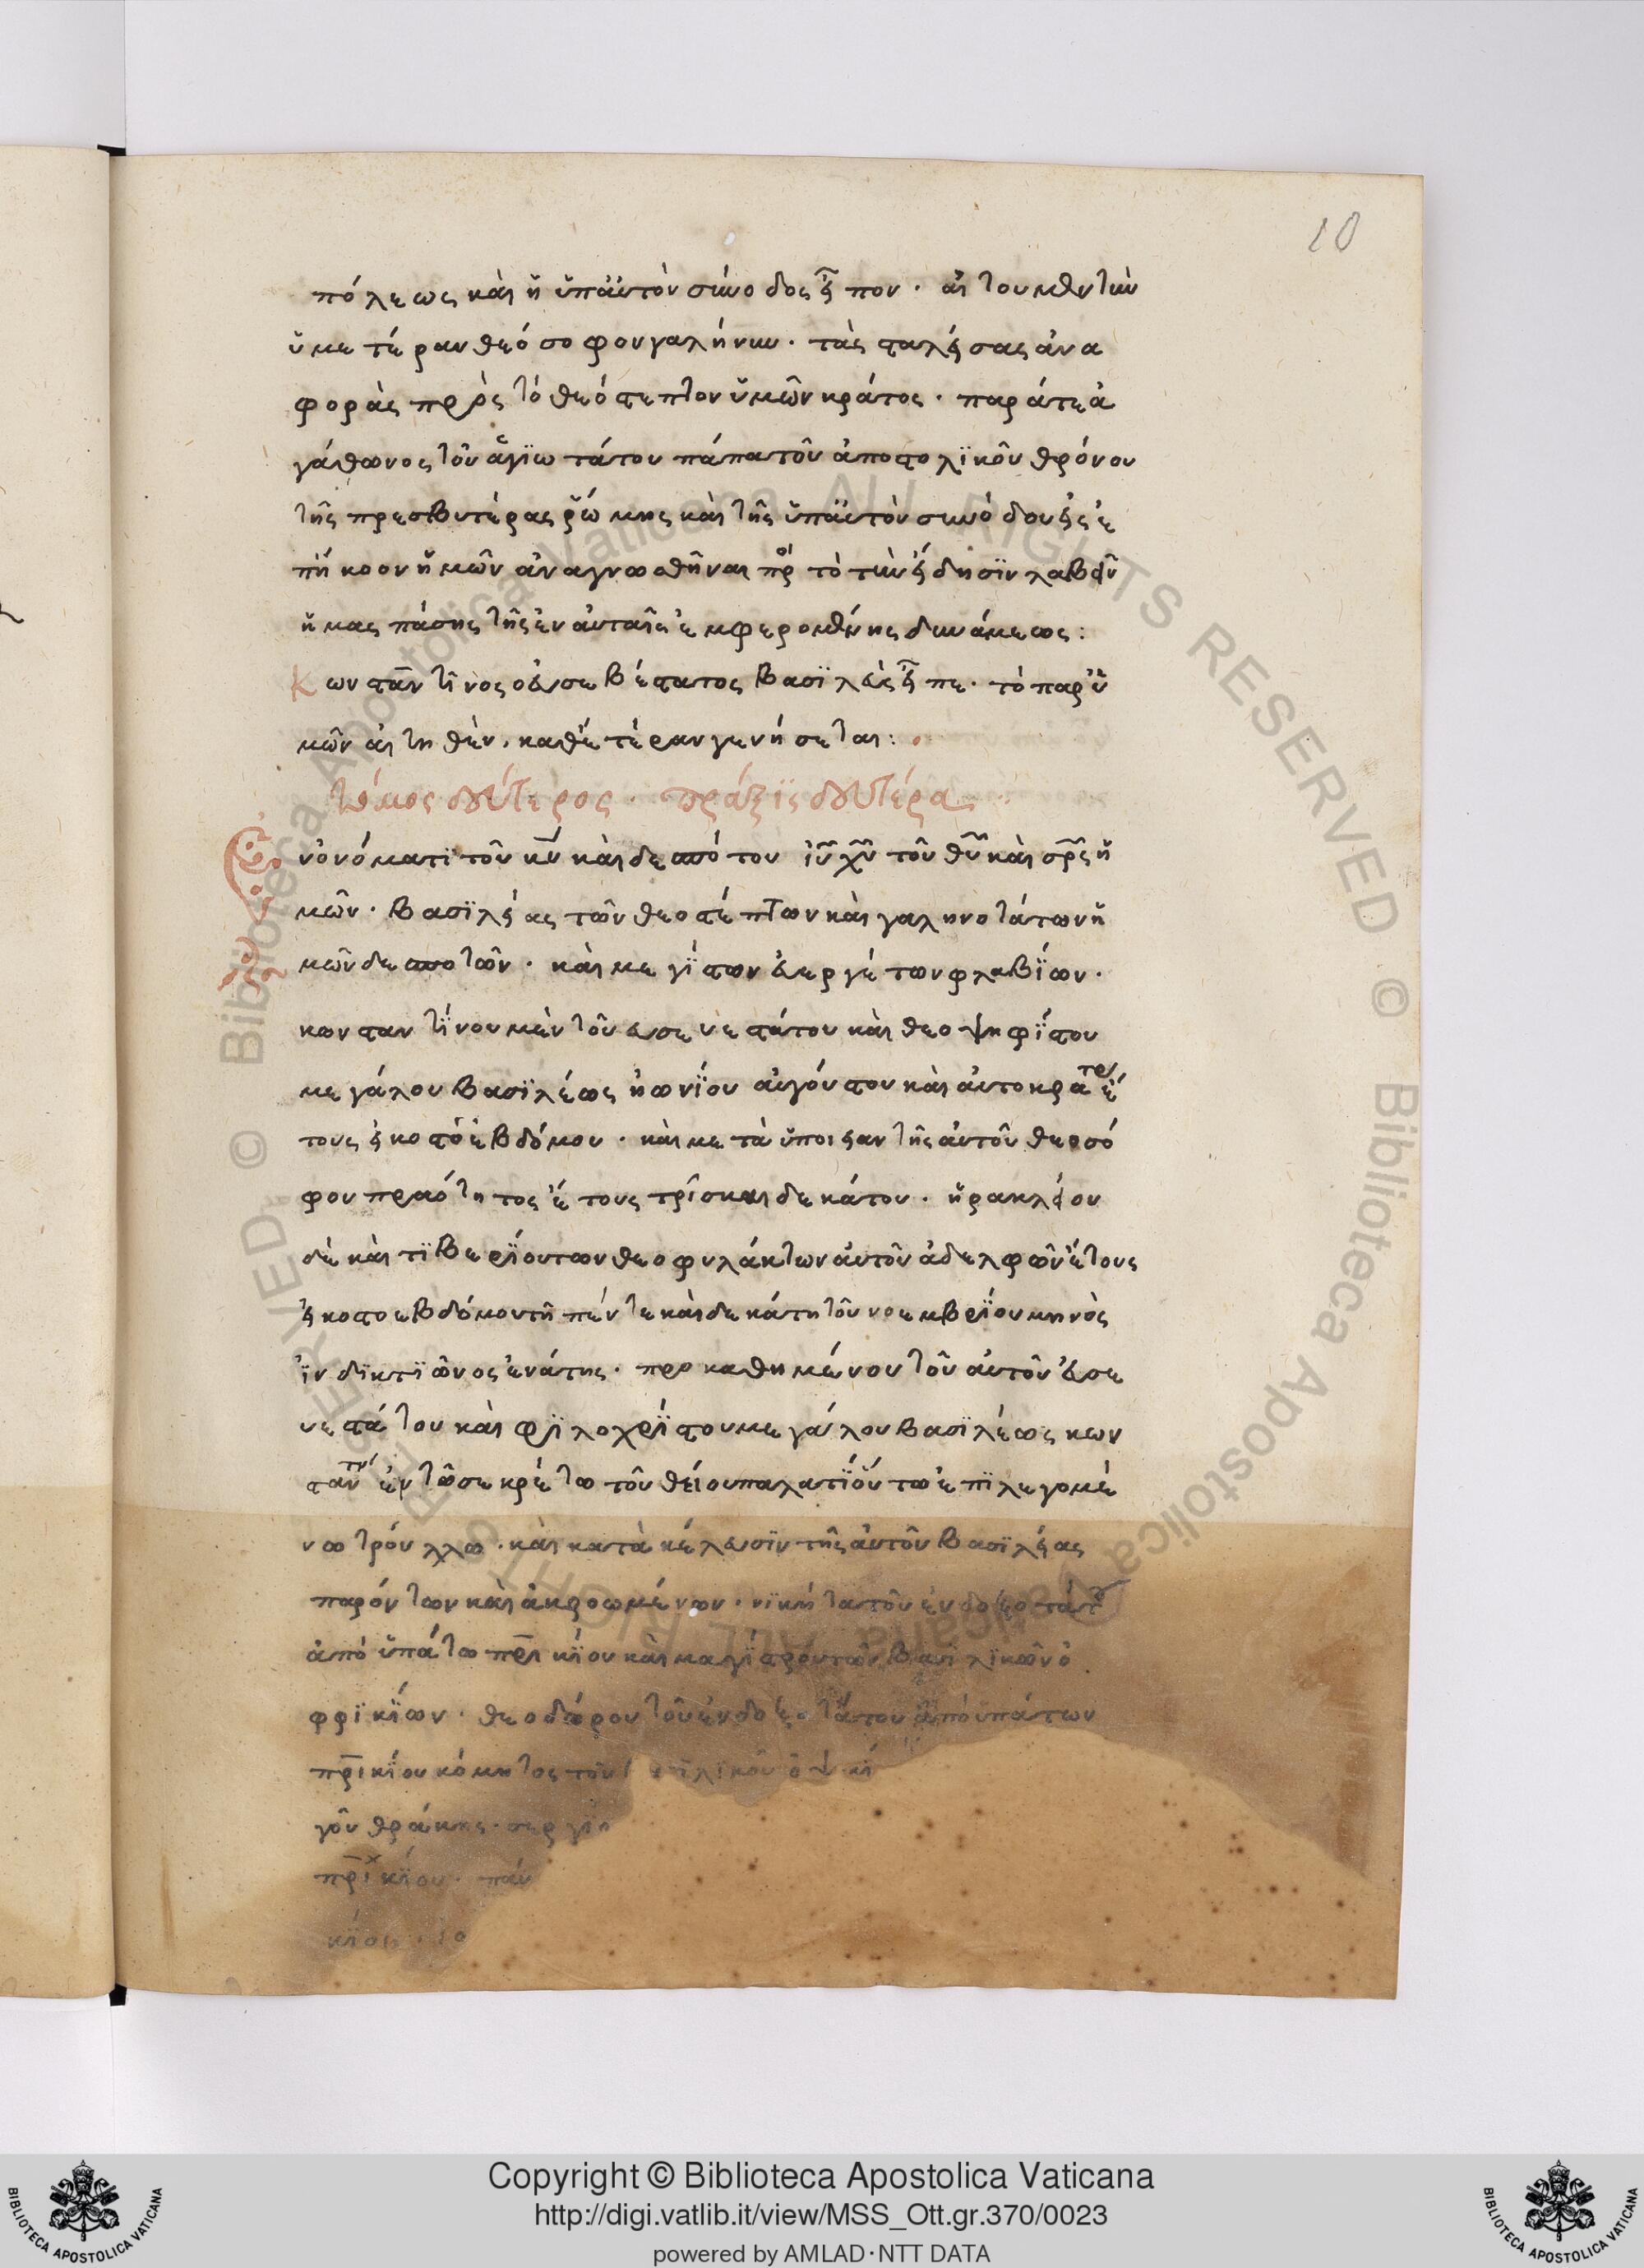 10
πόλεως καὶ ἡ ὑπ' αὐτὸν σύνοδος εἶπον· αἰτοῦμεν τὴν
ὑμετέραν θεόσοφον γαλήνην· τὰς σταλείσας ἀνα
φορὰς πρὸς τὸ θεόστεπτον ὑμῶν κράτος· παρά τε ἀ
γάθωνος τοῦ ἁγϊωτάτου πάπα τοῦ ἀποστολϊκοῦ θρόνου
τῆς πρεσβυτέρας ῥώμης καὶ τῆς ὑπ' αὐτὸν συνόδου εἰς ἐ
πήκοον ἡμῶν ἀναγνωσθῆναι πρ τὸ τὴν εἴδησϊν λαβεῖν
ἡμας πάσης τῆς ἐν αὐταῖς ἐμφερομένης δυνάμεως:
Κωνσταντῖνος ὁ εὐσεβέστατος βασϊλεὺς εἶπε· τὸ παρ' ὑ
μῶν αἰτηθὲν, καθ' ἑτέραν γενήσεται:
τόμος δεύτερος· πράξϊς δευτέρα
Ἐν ὀνόματϊ τοῦ κυ καὶ δεσπότου ιυ χυ τοῦ θυ καὶ σρς ἡ
μῶν· βασϊλείας τῶν θεοστέπτων καὶ γαληνοτάτων ἡ
μῶν δεσποτῶν· καὶ μεγΐστων εὐεργέτων φλαβΐων·
κωνσταντΐνου μὲν τοῦ εὐσενεστάτου καὶ θεοψηφΐστου
μεγάλου βασϊλέως ἠωνΐου αὐγούστου καὶ αὐτοκρατορ ἔ
τους εἰκοστό ἑβδόμου· καὶ μετὰ ὑποιειαν τῆς αὐτοῦ θεοσό
φου πραότητος ἔτους τρϊσκαιδεκάτου· ἡρακλείου
δὲ καὶ τϊβερΐου τῶν θεοφυλάκτων αὐτοῦ ἀδελφῶν ἔτους
εἰκοστο εβδόμου τῆ πέντε καὶ δεκάτη τοῦ νοεμβρΐου μηνὸς
ϊνδϊκτϊῶνος ἐνάτης· προκαθημένου τοῦ αὐτοῦ εὐσε
νεστάτου καὶ φϊλοχρΐστου μεγάλου βασϊλέως κων
σταντν ἐν τῶ σεκρέτω τοῦ θείου παλατΐου οὕτω ἐπϊλεγομέ
νω τρούλλω· καὶ κατὰ κέλευσϊν τῆς αὐτοῦ βασϊλείας
παρόντων καὶ ἀκροωμένων· νϊκήτα τοῦ ἐνδοξοτάτου
ἀπὸ ὑπάτω πρικΐου καὶ μαγΐστρου τῶν βασϊλϊκῶν ὀ
φφϊκΐων· θεοδώρου τοῦ ἐνδοξοτάτου ἀπὸ ὑπάτων
πρικΐου κόμητος τοῦ
γοῦ θράκης· σεργΐ
πρικΐου· παύ